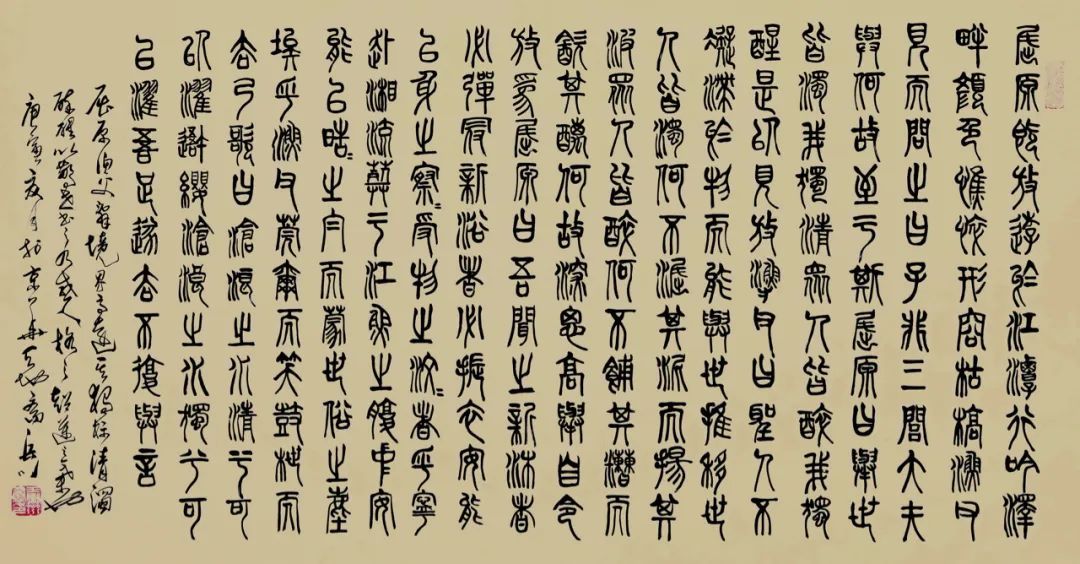 屈原既放遊於江潭行吟澤
畔顏色憔悴形容枯槁漁父
見而問之曰子非三閭大夫
與何故至于斯屈原曰舉世
皆濁我獨清眾人皆醉我獨
醒是以見放漁父曰聖人不
凝滯於物而能與世推移世
人皆濁何不淈其泥而揚其
波眾人皆醉何不餔其糟而
歠其醨何故深思高舉自令
放爲屈原曰吾聞之新沐者
必彈冠新浴者必振衣安能
以身之察〻受物之汶〻者乎寧
赴湘流葬于江魚之腹中安
能以晧〻之白而蒙世俗之塵
埃乎漁父莞爾而笑鼓枻而
去乃歌曰滄浪之水清兮可
以濯吾纓滄浪之水濁兮可
以濯吾足遂去不復與言
屈原漁父辭境界高遠其獨標清濁
醉醒以
庚寅夏月於京華